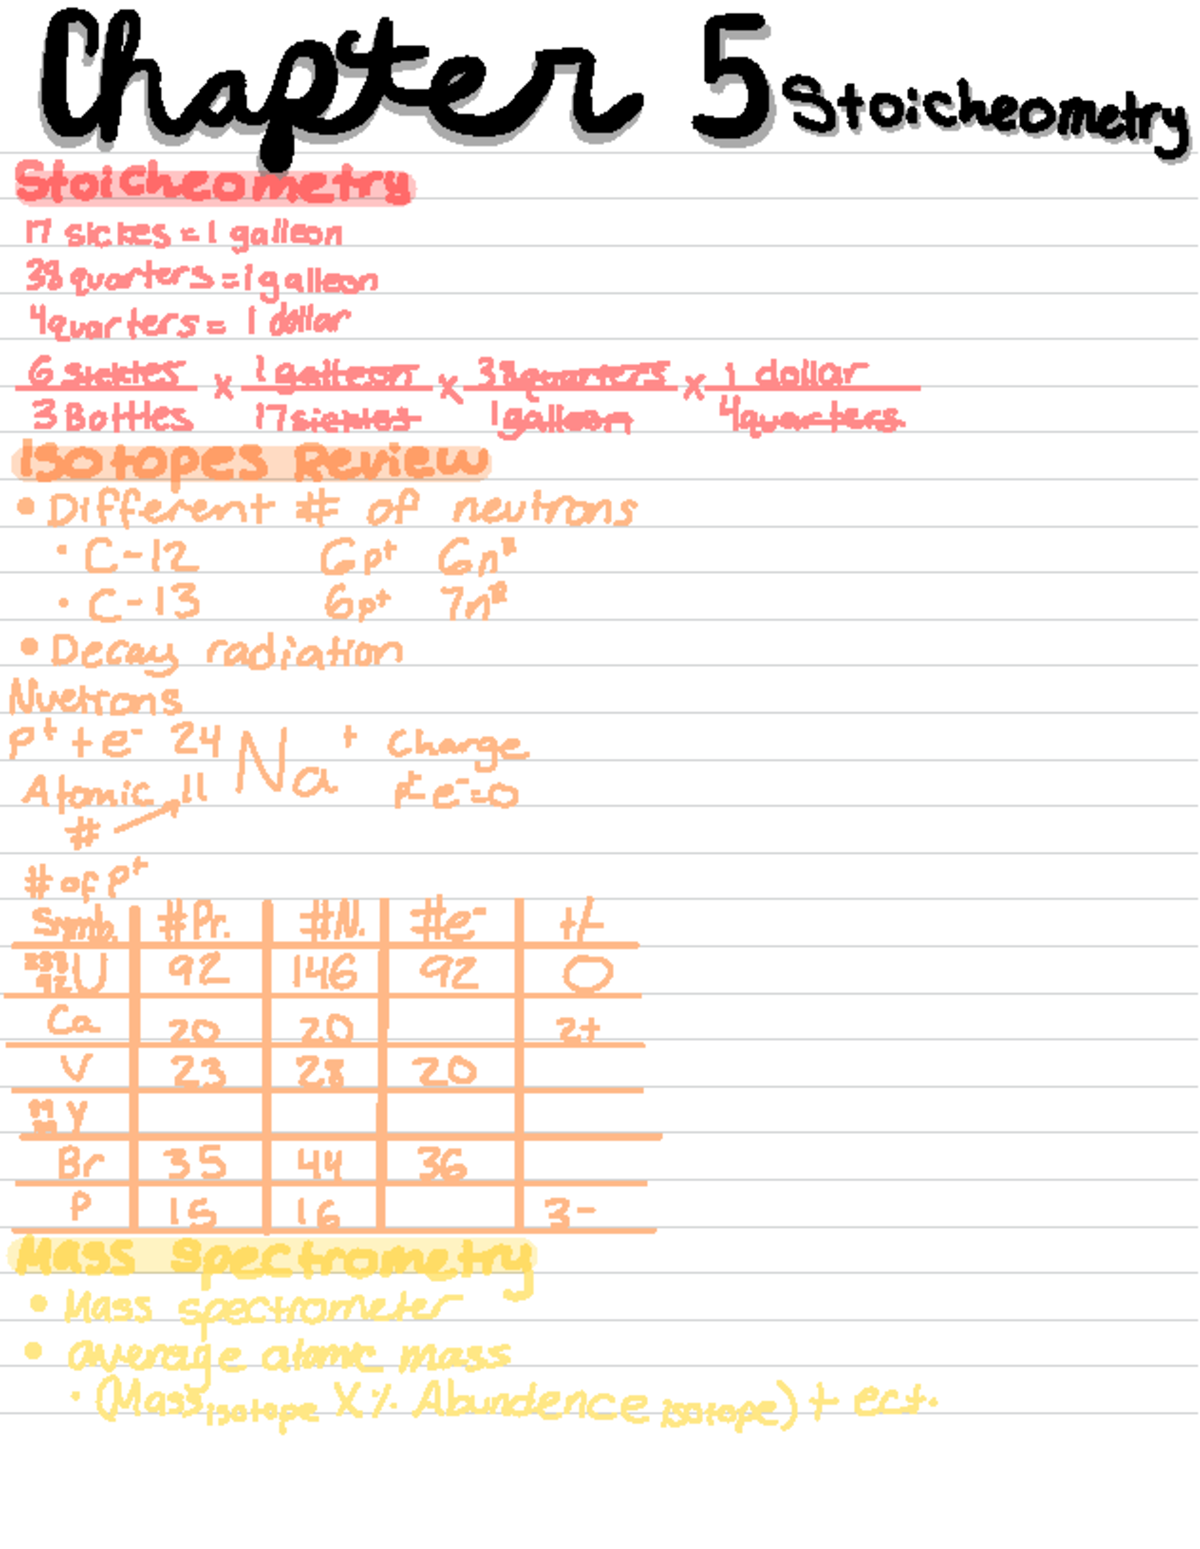 Chapter 5 Stoicheometry
Stoicheometry
17 sickes = 1 galleon
38 quarters = 1 galleon
4 quarters = 1 dollar
6 sickles / 3 Bottles x 1 galleon / 17 sickles x 38 quarters / 1 galleon x 1 dollar / 4 quarters
Isotopes Review
• Different # of neutrons
• C-12 6p+ 6n
• C-13 6p+ 7n
• Decay radiation
Nuetrons
p+ + e- 24 Na + Charge
Atomic 11 p+ e- = 0
#
# of p+
Symb. #Pr. #N. #e- +/-
238 92 U 92 146 92 0
Ca 20 20 2+
V 23 28 20
Y
Br 35 44 36
P 15 16 3-
Mass Spectrometry
• Mass spectrometer
• average atomic mass
• (Mass isotope X % Abundence isotope) + ect.